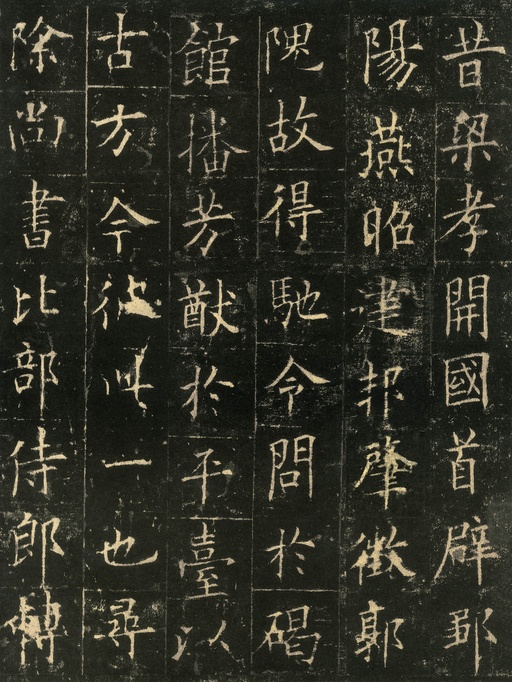 昔梁孝開國首辟鄒
陽燕昭建邦肈徵郭
隗故得馳令問於碣
館播芳猷於平臺以
古方今彼此一也尋
除尚書比部侍郎轉